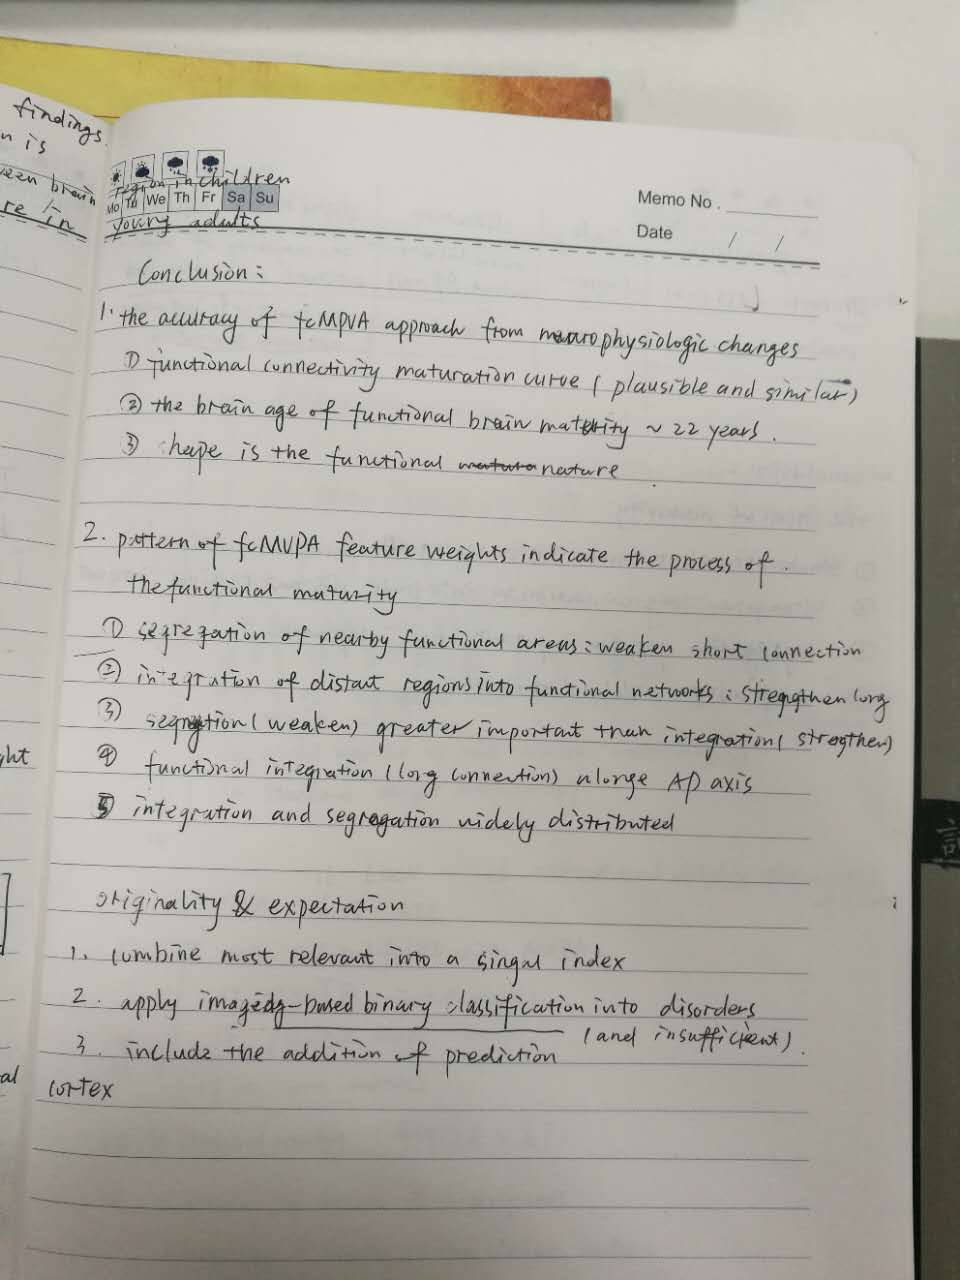 findings.
n is
ween brain
re in
region in children
Mo Tu We Th Fr Sa Su
young adults
Memo No.
Date / /
Conclusion:
1. the accuracy of fcMPVA approach from neurophysiologic changes
① functional connectivity maturation curve (plausible and similar)
② the brain age of functional brain maturity ~ 22 years.
③ shape is the functional nature
2. pattern of fcMVPA feature weights indicate the process of.
the functional maturity
① segregation of nearby functional areas: weaken short connection
② integration of distant regions into functional networks: strengthen long
③ segregation (weaken) greater important than integration (strogthen)
④ functional integration (long connection) alonge AP axis
⑤ integration and segregation widely distributed
ght
originality & expectation
1. combine most relevant into a singal index
2. apply imageing-based binary classification into disorders
(and insufficient).
3. include the addition of prediction
al
cortex